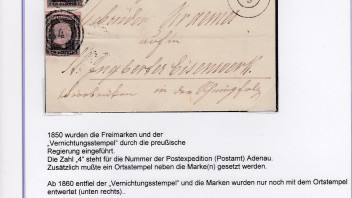 Gebrüder Kraemer
auf
St. Ingberter Eisenwerk
in der
4
1850 wurden die Freimarken und der
„Vernichtungsstempel“ durch die preußische
Regierung eingeführt.
Die Zahl „4“ steht für die Nummer der Postexpedition (Postamt) Adenau.
Zusätzlich mußte ein Ortstempel neben die Marke(n) gesetzt werden.
Ab 1860 entfiel der „Vernichtungsstempel“ und die Marken wurden nur noch mit dem Ortstempel
entwertet (unten rechts)..